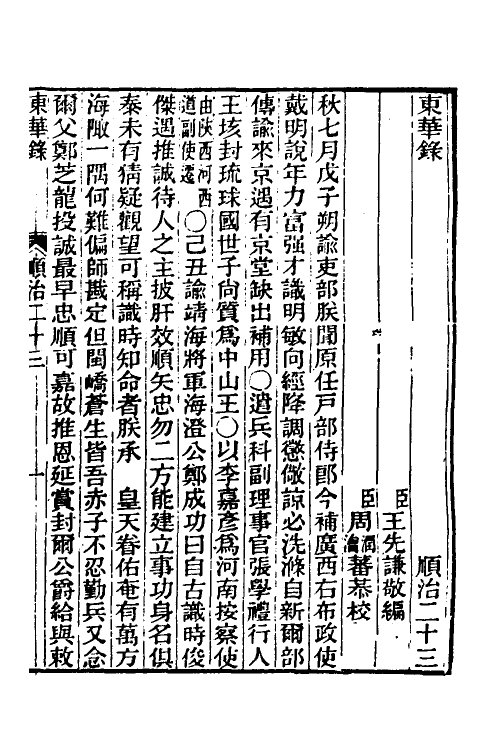 東華錄　順治二十三
臣王先謙敬編
臣周潤蕃周瀹蕃恭校
秋七月戊子朔諭吏部朕聞原任戸部侍郎今補廣西右布政使
戴明說年力富强才識明敏向經降調懲儆諒必洗滌自新爾部
傳諭來京遇有京堂缺出補用〇遣兵科副理事官張學禮行人
王垓封琉球國世子尙質爲中山王〇以李嘉彥爲河南按察使
由陝西河西道副使遷〇己丑諭靖海將軍海澄公鄭成功曰自古識時俊
傑遇推誠待人之主披肝效順矢忠勿二方能建立事功身名俱
泰未有猜疑觀望可稱識時知命者朕承　皇天眷佑奄有萬方
海陬一隅何難偏師戡定但閩嶠蒼生皆吾赤子不忍勤兵又念
爾父鄭芝龍投誠最早忠順可嘉故推恩延賞封爾公爵給與敕
東華錄　順治二十三　一